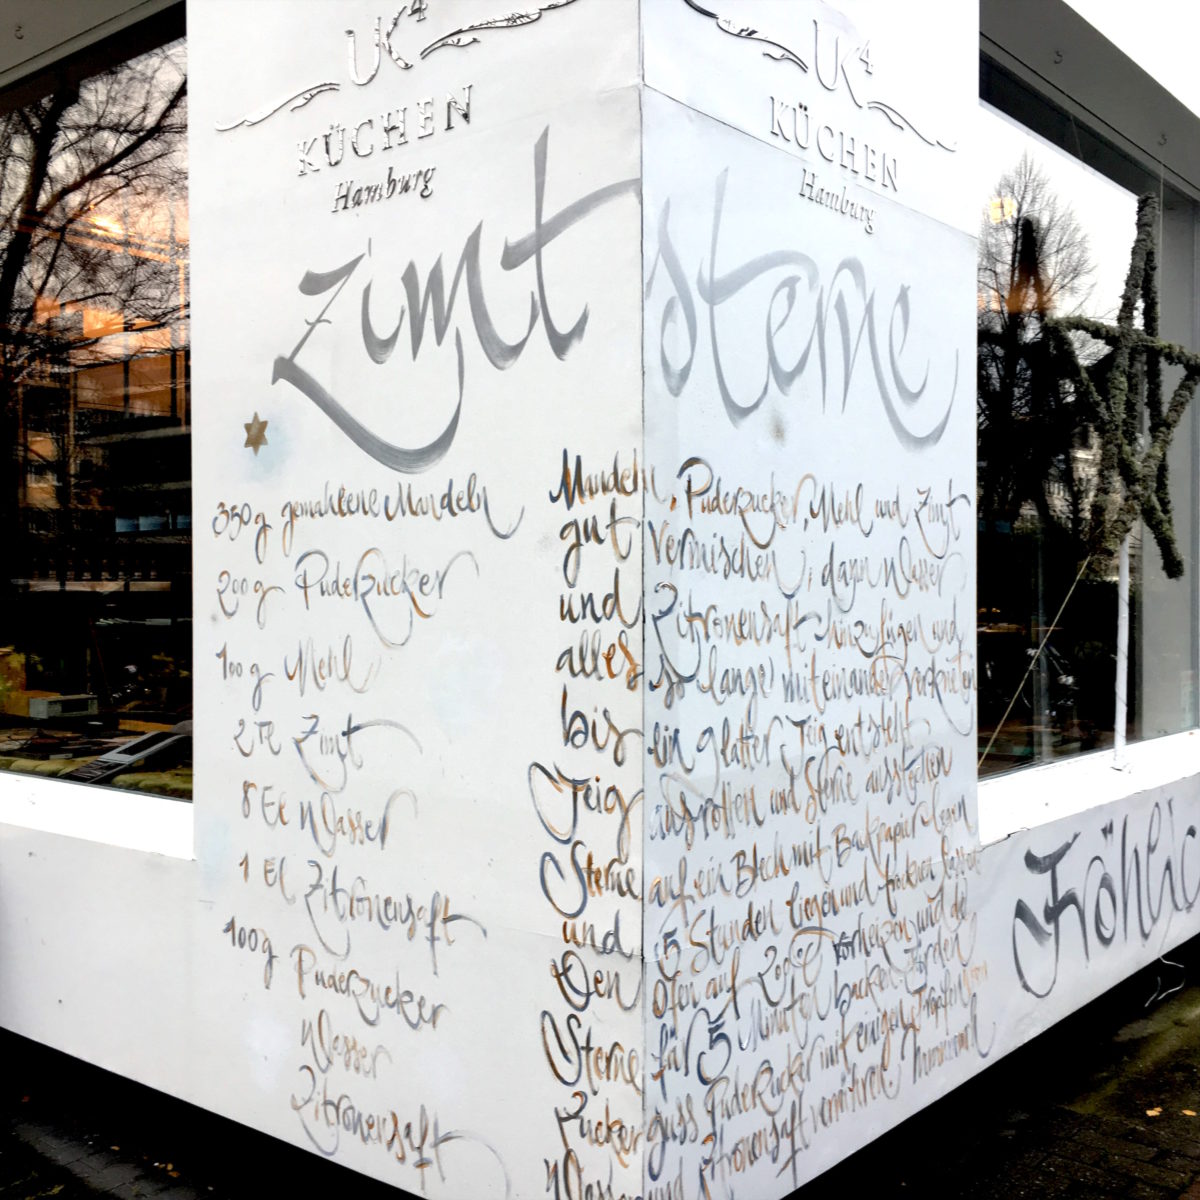 UK4
KÜCHEN
Hamburg
UK4
KÜCHEN
Hamburg
Zimt sterne
350g gemahlene Mandeln
200g Puderzucker
100g Mehl
2 TL Zimt
8 EL Wasser
1 EL Zitronensaft
100g Puderzucker
Wasser
Zitronensaft
Mandeln, Puderzucker, Mehl und Zimt
gut vermischen, dann Wasser
und Zitronensaft hinzufügen und
alles so lange miteinander verkneten
bis ein glatter Teig entsteht
Teig ausrollen und Sterne ausstechen
Sterne auf ein Blech mit Backpapier legen
und 5 Stunden liegen und trocknen lassen
Ofen auf 200°C vorheizen und die
Sterne für 5 Minuten backen. Für den
Zuckerguss Puderzucker mit einigen Tropfen
Wasser und Zitronensaft verrühren
Fröhlic